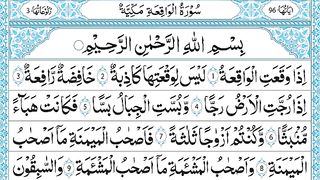 اٰيَاتُهَا 96 سُوْرَةُ الْوَاقِعَةِ مَكِّيَّةٌ رُكُوْعَاتُهَا 3
بِسْمِ اللّٰهِ الرَّحْمٰنِ الرَّحِيْمِ
اِذَا وَقَعَتِ الْوَاقِعَةُ 1 لَيْسَ لِوَقْعَتِهَا كَاذِبَةٌ 2 خَافِضَةٌ رَّافِعَةٌ 3
اِذَا رُجَّتِ الْاَرْضُ رَجًّا 4 وَّبُسَّتِ الْجِبَالُ بَسًّا 5 فَكَانَتْ هَبَآءً
مُّنْۢبَثًّا 6 وَّكُنْتُمْ اَزْوَاجًا ثَلٰثَةً 7 فَاَصْحٰبُ الْمَيْمَنَةِ مَاۤ اَصْحٰبُ
الْمَيْمَنَةِ 8 وَاَصْحٰبُ الْمَشْـَٔمَةِ مَاۤ اَصْحٰبُ الْمَشْـَٔمَةِ 9 وَالسّٰبِقُوْنَ